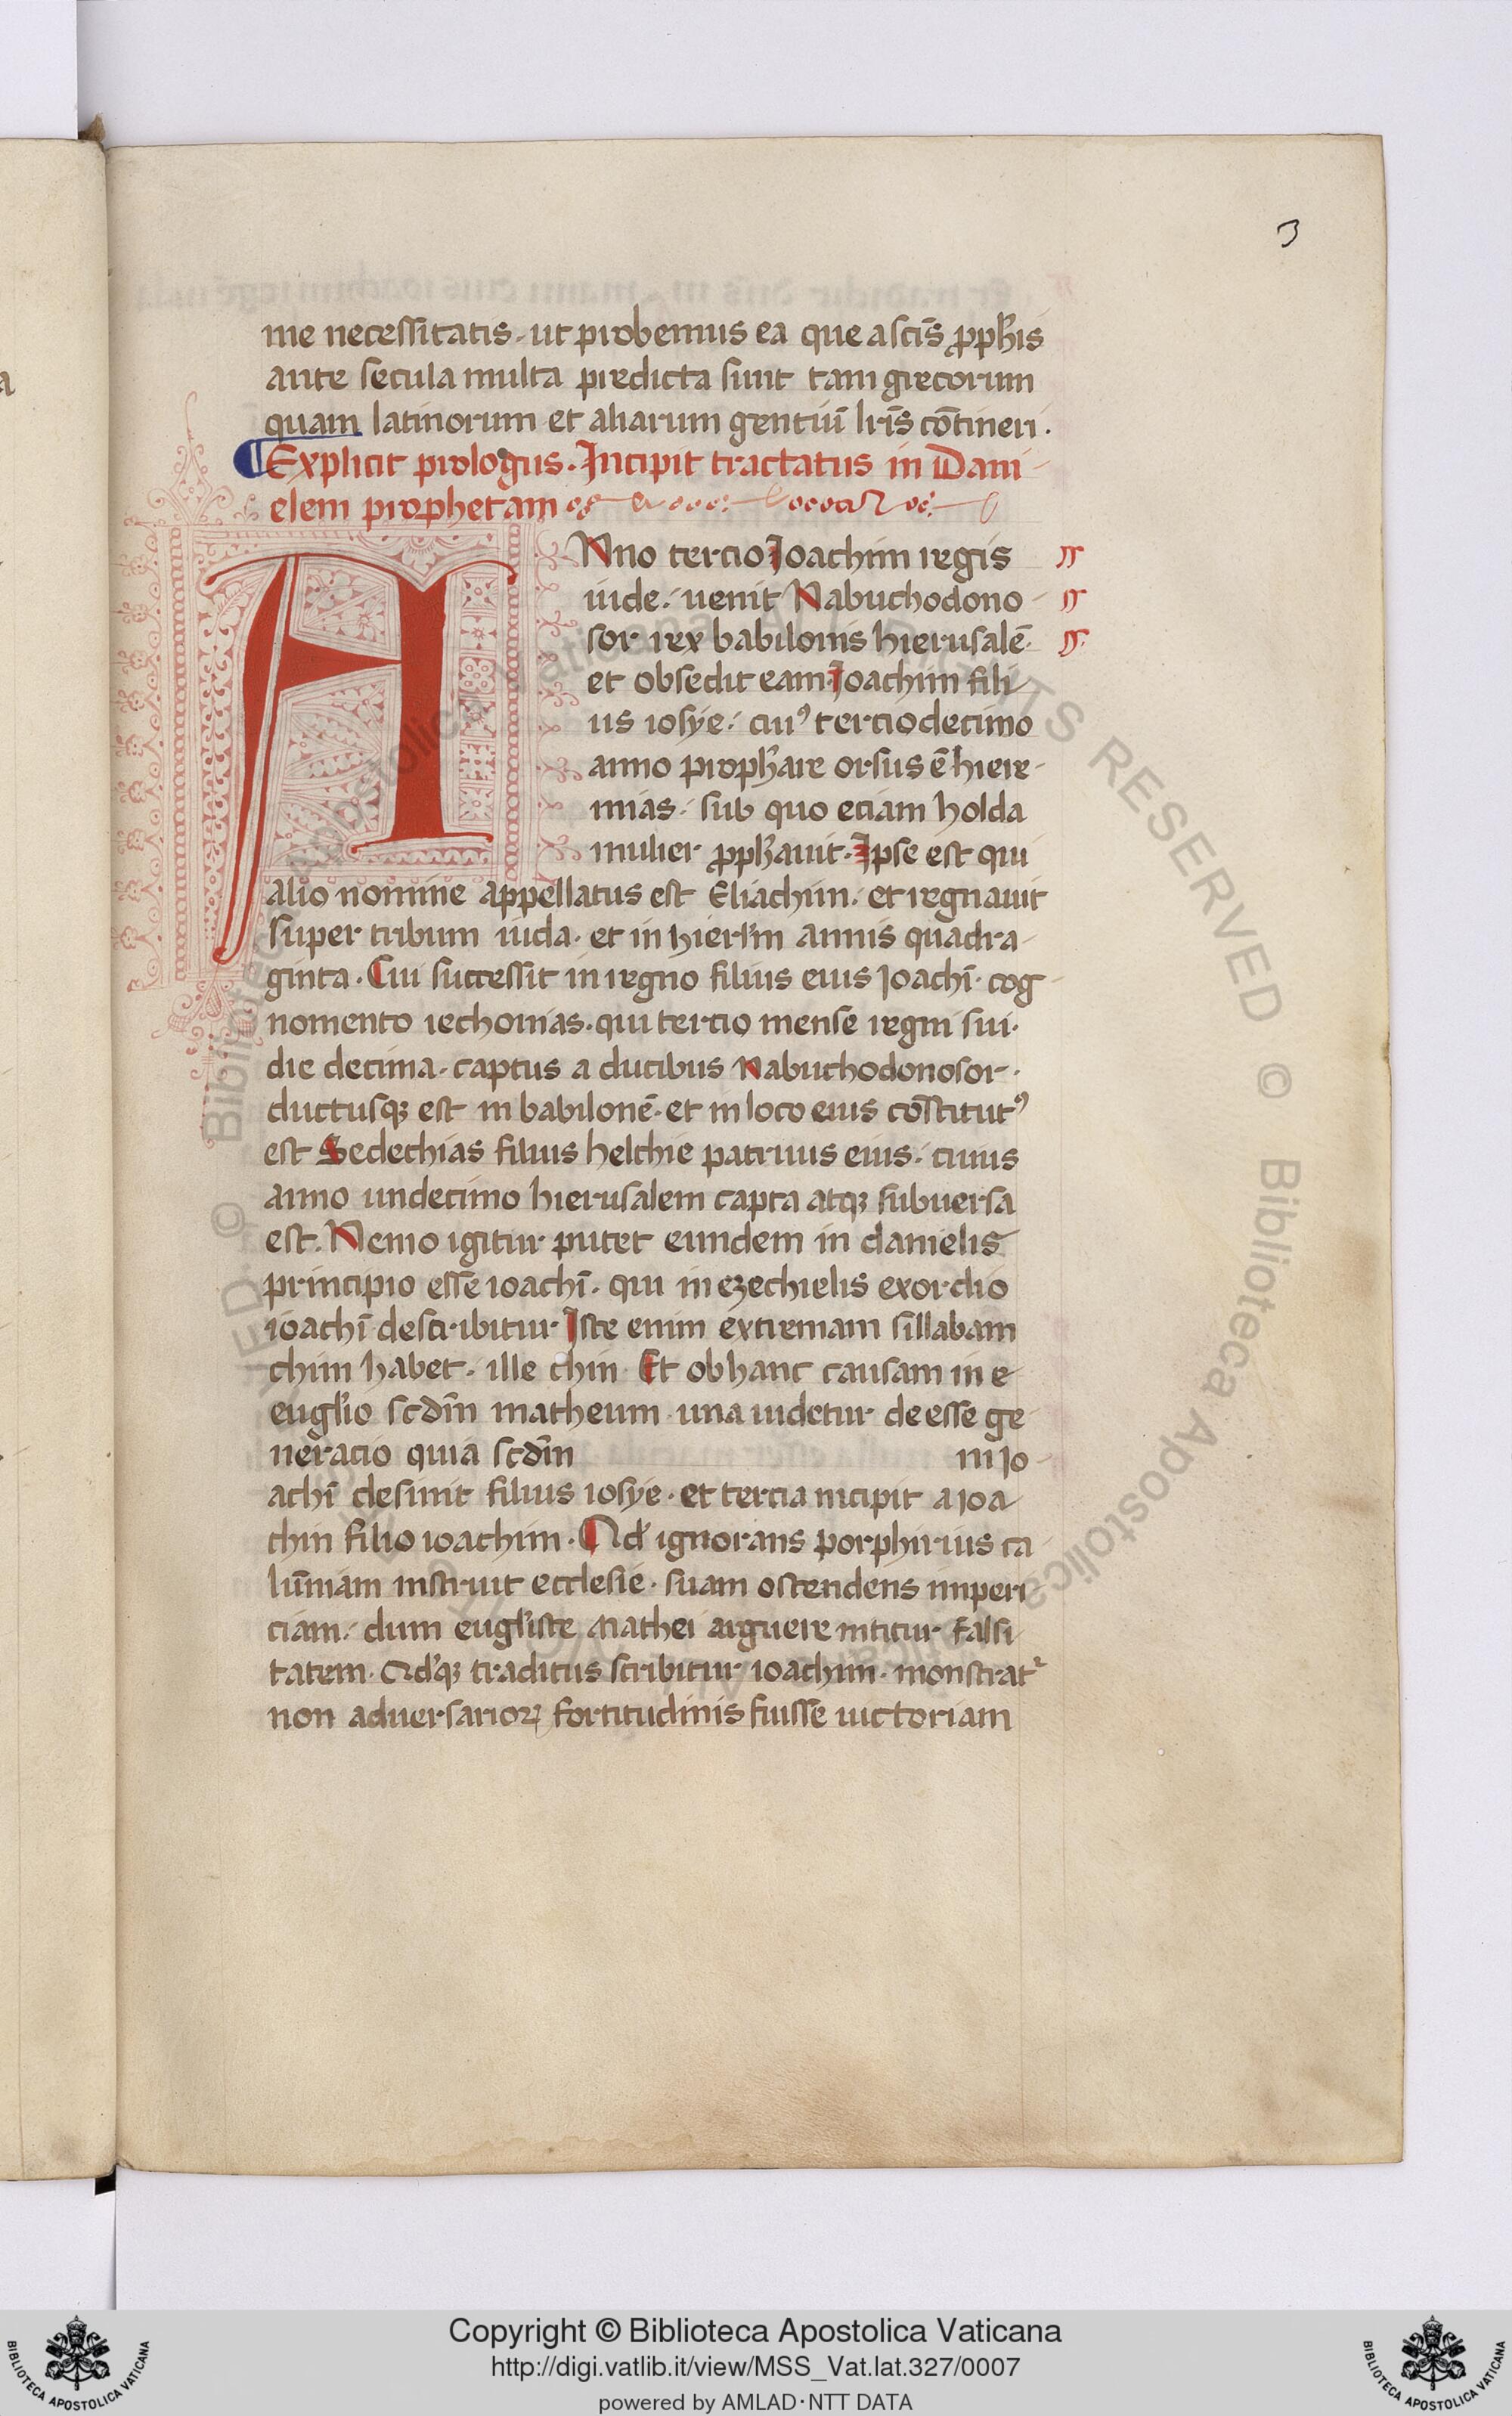 3
me necessitatis. ut probemus ea que a scīs ꝓpħis
ante secula multa predicta sunt tam grecorum
quam latinorum et aliarum gentiū lr̄is cōtineri.
Explicit prologus. Incipit tractatus in Dani-
elem prophetam
ANno tercio Joachim regis
iude. uenit Nabuchodono-
sor rex babilonis hierusalē.
et obsedit eam. Joachim fili-
us iosye. cuiꝰ terciodecimo
anno prophare orsus ē hiere-
mias. sub quo eciam holda
mulier ꝓpħauit. Ipse est qui
alio nomine appellatus est Eliachim. et regnauit
super tribum iuda. et in hierlm annis quadra-
ginta. Cui successit in regno filius eius Joachī. cog-
nomento iechonias. qui tercio mense regni sui.
die decima. captus a ducibus Nabuchodonosor.
ductusqꝫ est in babilonē. et in loco eius cōstitutꝰ
est Sedechias filius helchie patruus eius. cuius
anno undecimo hierusalem capta atqꝫ subuersa
est. Nemo igitur putet eundem in danielis
principio esse ioachī. qui in ezechielis exordio
ioachī describitur Iste enim extremam sillabam
chim habet. ille chin. Et ob hanc causam in e-
euglio scdm̄ matheum una uidetur deesse ge-
neracio quia scdm̄ in Jo-
achī desinit filius iosye. et tercia incipit a Joa-
chin filio ioachim. Qd' ignorans porphirius ca-
lūniam instruit ecclesie. suam ostendens imperi-
ciam. dum eugliste Mathei arguere nititur falsi-
tatem. Qd'qꝫ traditus scribitur ioachim. monstrat᷑
non aduersarioꝝ fortitudinis fuisse uictoriam
Copyright © Biblioteca Apostolica Vaticana
http://digi.vatlib.it/view/MSS_Vat.lat.327/0007
powered by AMLAD·NTT DATA
BIBLIOTECA APOSTOLICA VATICANA
BIBLIOTECA APOSTOLICA VATICANA